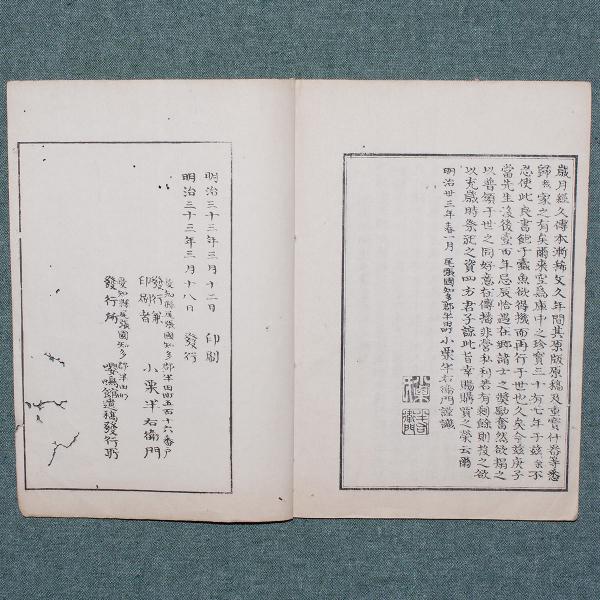 歲月經久傳本漸稀文久年間其原版原稿及重寶什器等悉
歸我家之有矣爾來空為庫中之珍寶三十有七年于茲余不
忍使此良書飽于蠹魚欲得機而再行于世也久矣今茲庚子
當先生沒後壹百年忌辰恰遇在鄉諸士之獎勵奮然欲搨之
以普頒于世之同好意在傳播非營私利若有剩餘則投之欲
以充歲時祭祀之資四方君子諒此旨幸賜購買之榮云爾
明治卅三年春一月 尾張國知多郡半田町 小栗半右衛門謹識
明治三十三年三月十二日 印刷
明治三十三年三月十八日 發行
愛知縣尾張國知多郡半田町五百十六番戶
發行兼印刷者 小栗半右衛門
愛知縣尾張國知多郡半田町
發行所 嚶鳴館遺稿發行所